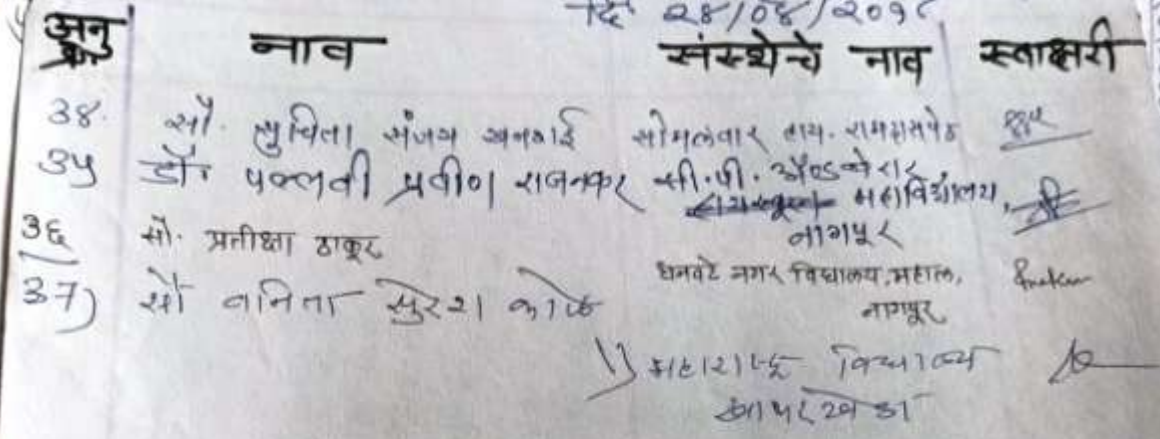 दि २४/०४/२०१८
अनु क्र. नाव संस्थेचे नाव स्वाक्षरी
३४. सौ. सुचिता संजय सोमलवार हाय. रामदासपेठ
३५ डॉ. पल्लवी प्रवीण राजनकर सी.पी. ॲण्ड बेरार
महाविद्यालय,
नागपूर
३६ सौ. प्रतीक्षा ठाकूर
धनवटे नगर विद्यालय, महाल,
नागपूर
३७) सौ वनिता सुरेश काळे
महाराष्ट्र विद्यालय
खापरखेडा